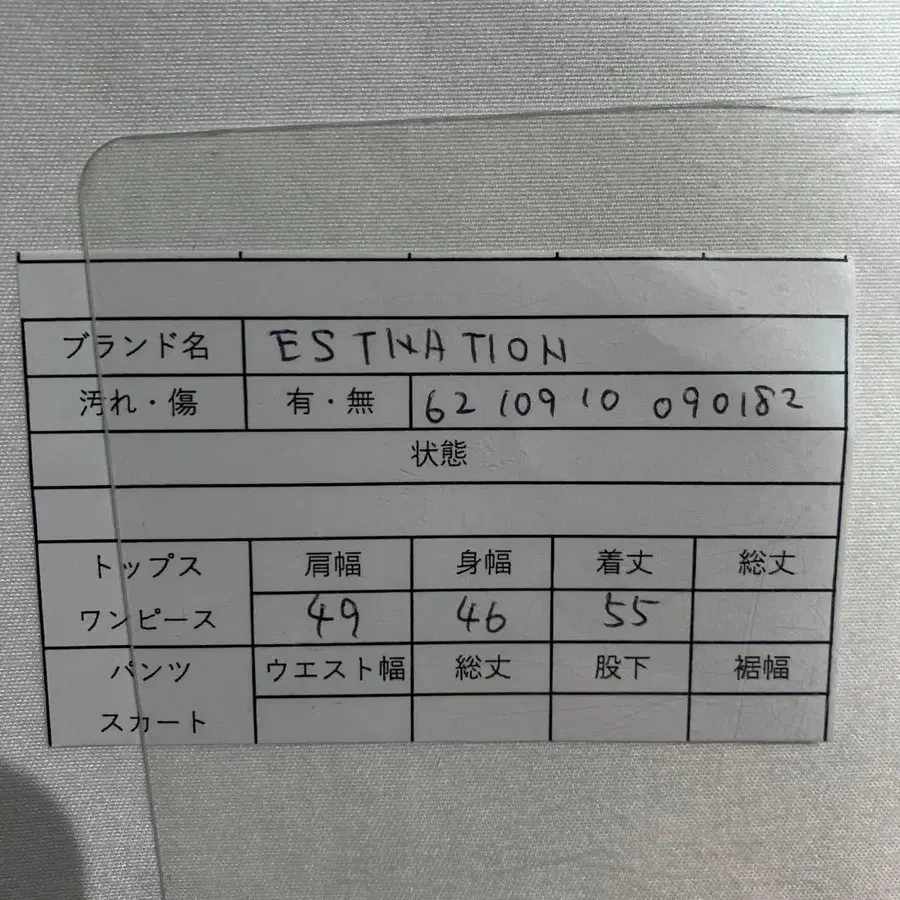 ブランド名 ESTNATION
汚れ・傷 有・無 62 10910 090182
状態
トップス 肩幅 身幅 着丈 総丈
ワンピース 49 46 55
パンツ ウエスト幅 総丈 股下 裾幅
スカート